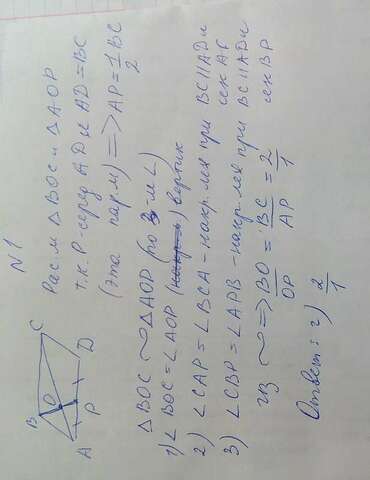 N1
B
C
O
A
P
D
Рас.м ΔBOC и ΔAOP
т.к. P-серед AD и AD=BC
(эта пар.м) => AP=1/2BC
ΔBOC ~ ΔAOP (по 3-м ∠)
1) ∠BOC=∠AOP () вертик
2) ∠CAP=∠BCA-накр.леж при BC||AD и
сек AC
3) ∠CBP=∠APB-накр.леж при BC||AD и
сек BP
из ~ => BO/OP=BC/AP=2/1
Ответ: г) 2/1